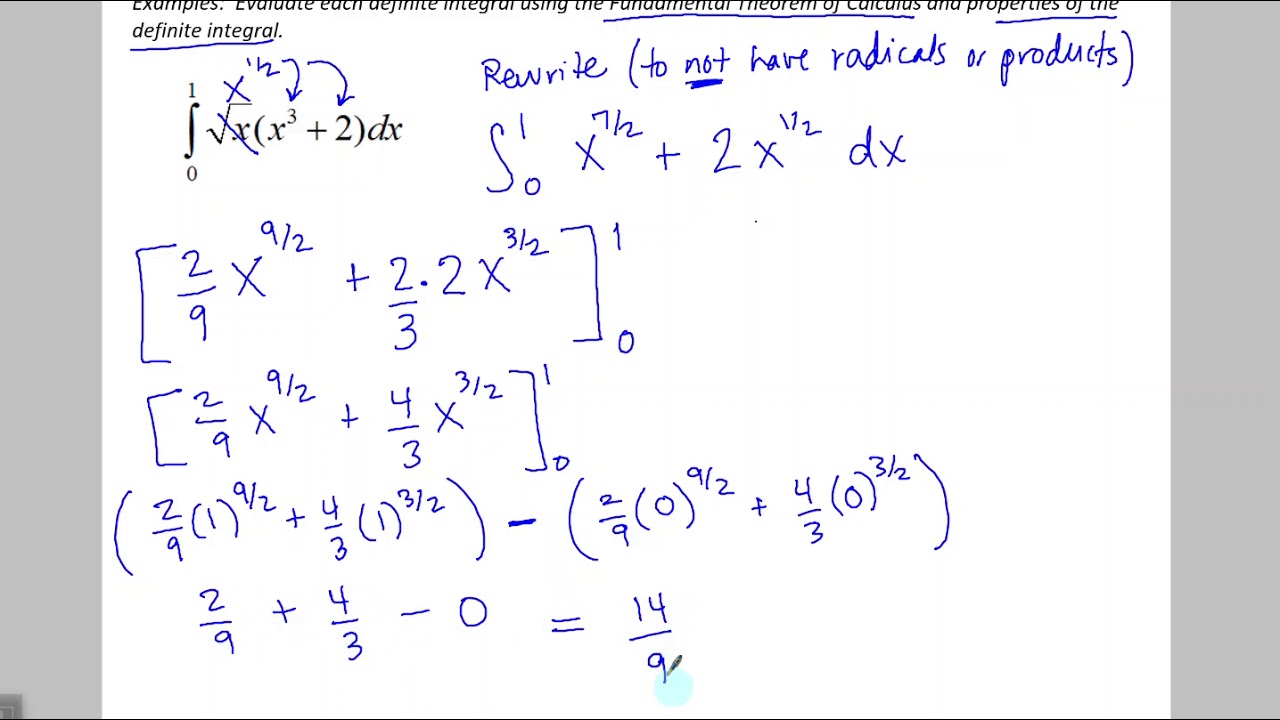 Examples: Evaluate each definite integral using the Fundamental Theorem of Calculus and properties of the
definite integral.
Rewrite (to not have radicals or products)
x^{1/2}
∫_0^1 √x(x^3 + 2)dx
∫_0^1 x^{7/2} + 2x^{1/2} dx
[2/9 x^{9/2} + 2/3 · 2x^{3/2}]_0^1
[2/9 x^{9/2} + 4/3 x^{3/2}]_0^1
(2/9 (1)^{9/2} + 4/3 (1)^{3/2}) - (2/9 (0)^{9/2} + 4/3 (0)^{3/2})
2/9 + 4/3 - 0 = 14/9